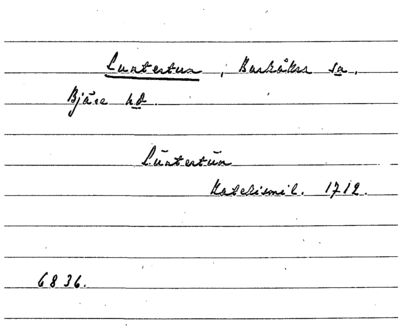 Luntertun, Barkåkra sn,
Bjäre hd.
Lüntertün
Katekismil. 1712.
6836.